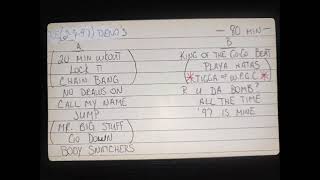 (2-9-97) DEMOS - 80 MIN -
A
20 MIN WORKOUT
LOCK IT
CHAIN BANG
NO DRAWS ON
CALL MY NAME
JUMP
MR. BIG STUFF
GO DOWN
BODY SNATCHERS
B
KING OF THE GO-GO BEAT
PLAYA HATAS
* TIGGA OF W.P.G.C. *
R U DA BOMB?
ALL THE TIME
'97 IS MINE